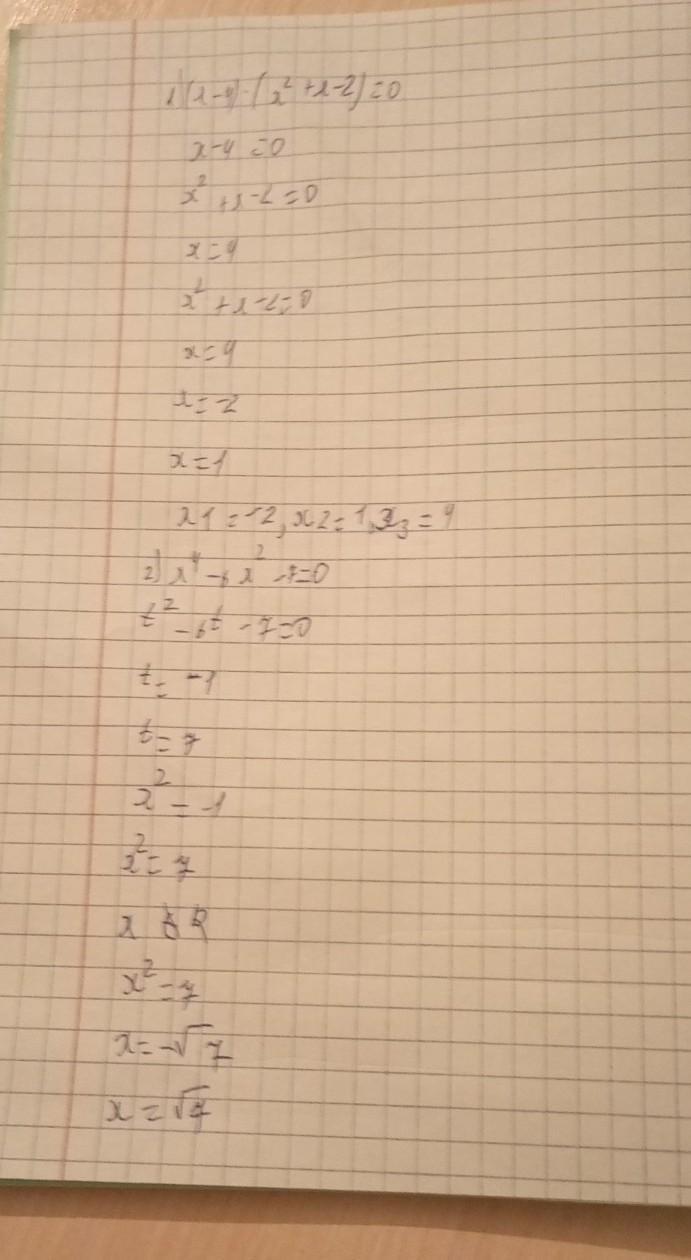 1) (x-4)·(x²+x-2)=0
x-4=0
x²+x-2=0
x=4
x²+x-2=0
x=4
x=-2
x=1
x1=-2, x2=1, x₃=4
2) x⁴-6x²-7=0
t²-6t-7=0
t=-1
t=7
x²=-1
x²=7
x ∉ R
x²=7
x=-√7
x=√7